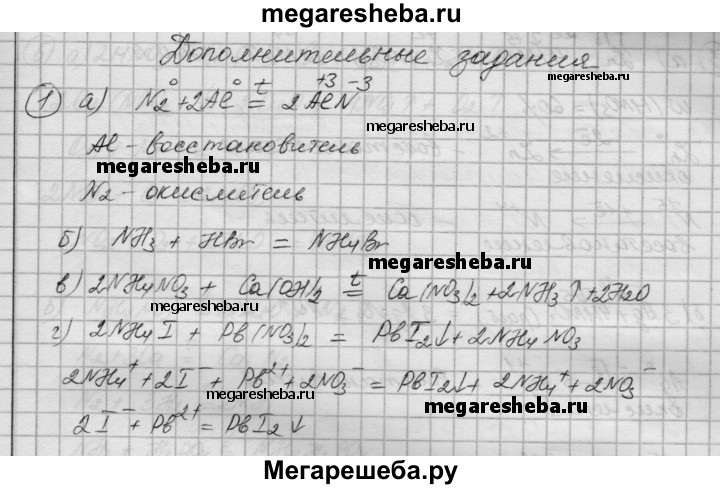 megaresheba.ru
Дополнительные задания
megaresheba.ru
1 а) N₂⁰ + 2Al⁰ =ᵗ 2Al⁺³N⁻³
megaresheba.ru
Al - восстановитель
megaresheba.ru
N₂ - окислитель
б) NH₃ + HBr = NH₄Br
megaresheba.ru
в) 2NH₄NO₃ + Ca(OH)₂ =ᵗ Ca(NO₃)₂ + 2NH₃↑ + 2H₂O
megaresheba.ru
г) 2NH₄I + Pb(NO₃)₂ = PbI₂↓ + 2NH₄NO₃
2NH₄⁺ + 2I⁻ + Pb²⁺ + 2NO₃⁻ = PbI₂↓ + 2NH₄⁺ + 2NO₃⁻
megaresheba.ru
megaresheba.ru
2I⁻ + Pb²⁺ = PbI₂↓
Мегарешеба.ру